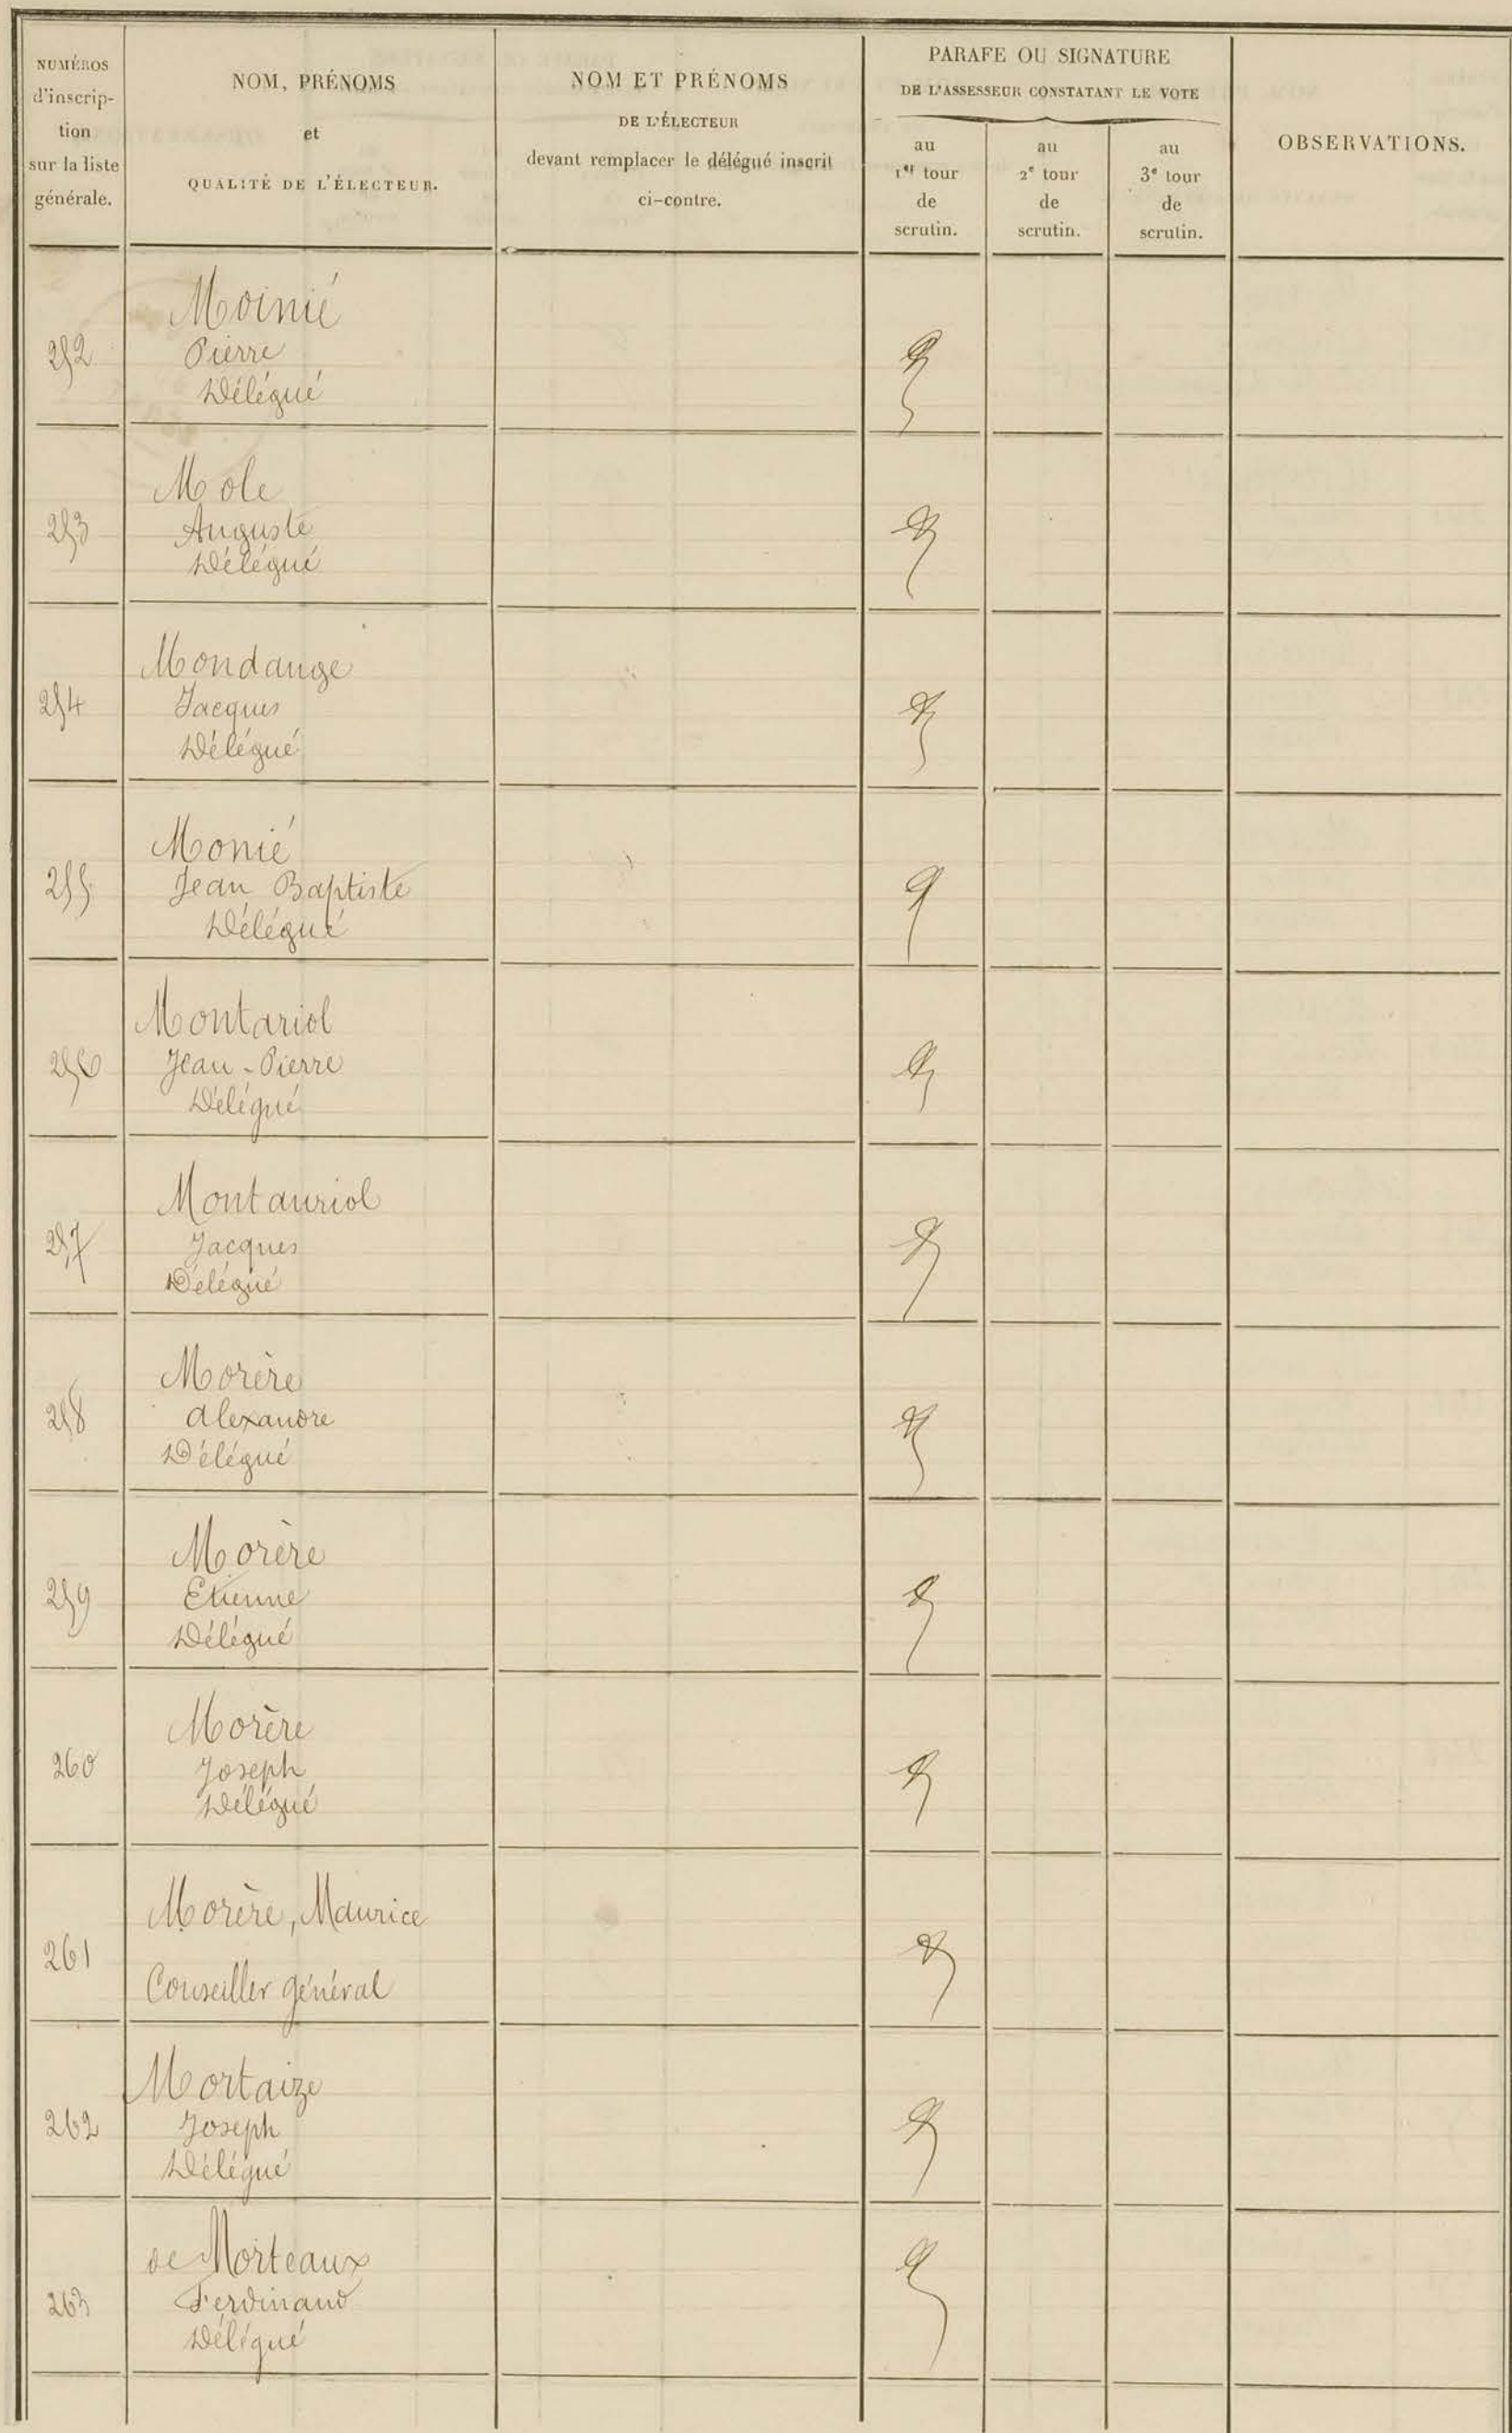 NUMÉROS
d'inscrip-
tion
sur la liste
générale.
NOM, PRÉNOMS
et
QUALITÉ DE L'ÉLECTEUR.
NOM ET PRÉNOMS
DE L'ÉLECTEUR
devant remplacer le délégué inscrit
ci-contre.
PARAFE OU SIGNATURE
DE L'ASSESSEUR CONSTATANT LE VOTE
au
1er tour
de
scrutin.
au
2e tour
de
scrutin.
au
3e tour
de
scrutin.
OBSERVATIONS.
Moinié
252 Pierre
Délégué
Mole
253 Auguste
Délégué
Mondange
254 Jacques
Délégué
Monié
255 Jean Baptiste
Délégué
Montariol
256 Jean-Pierre
Délégué
Montauriol
257 Jacques
Délégué
Morère
258 Alexandre
Délégué
Morère
259 Etienne
Délégué
Morère
260 Joseph
Délégué
Morère, Maurice
261
Conseiller général
Mortaize
262 Joseph
Délégué
de Morteaux
263 Ferdinand
Délégué